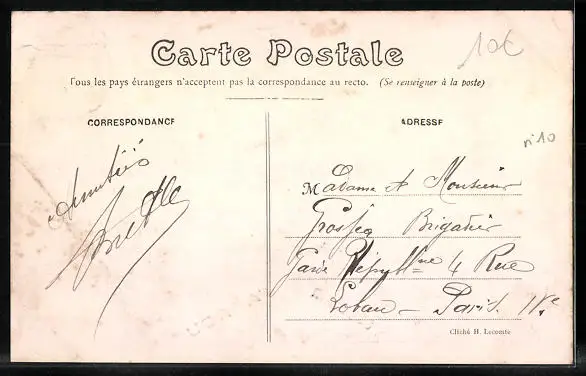 Carte Postale
10€
Tous les pays étrangers n'acceptent pas la correspondance au recto. (Se renseigner à la poste)
CORRESPONDANCE
ADRESSE
n° 10
Amitiés
Madame & Monsieur
Brigadier
Garde Répubne 4 Rue
Lobau - Paris. IVe
Cliché H. Lecomte